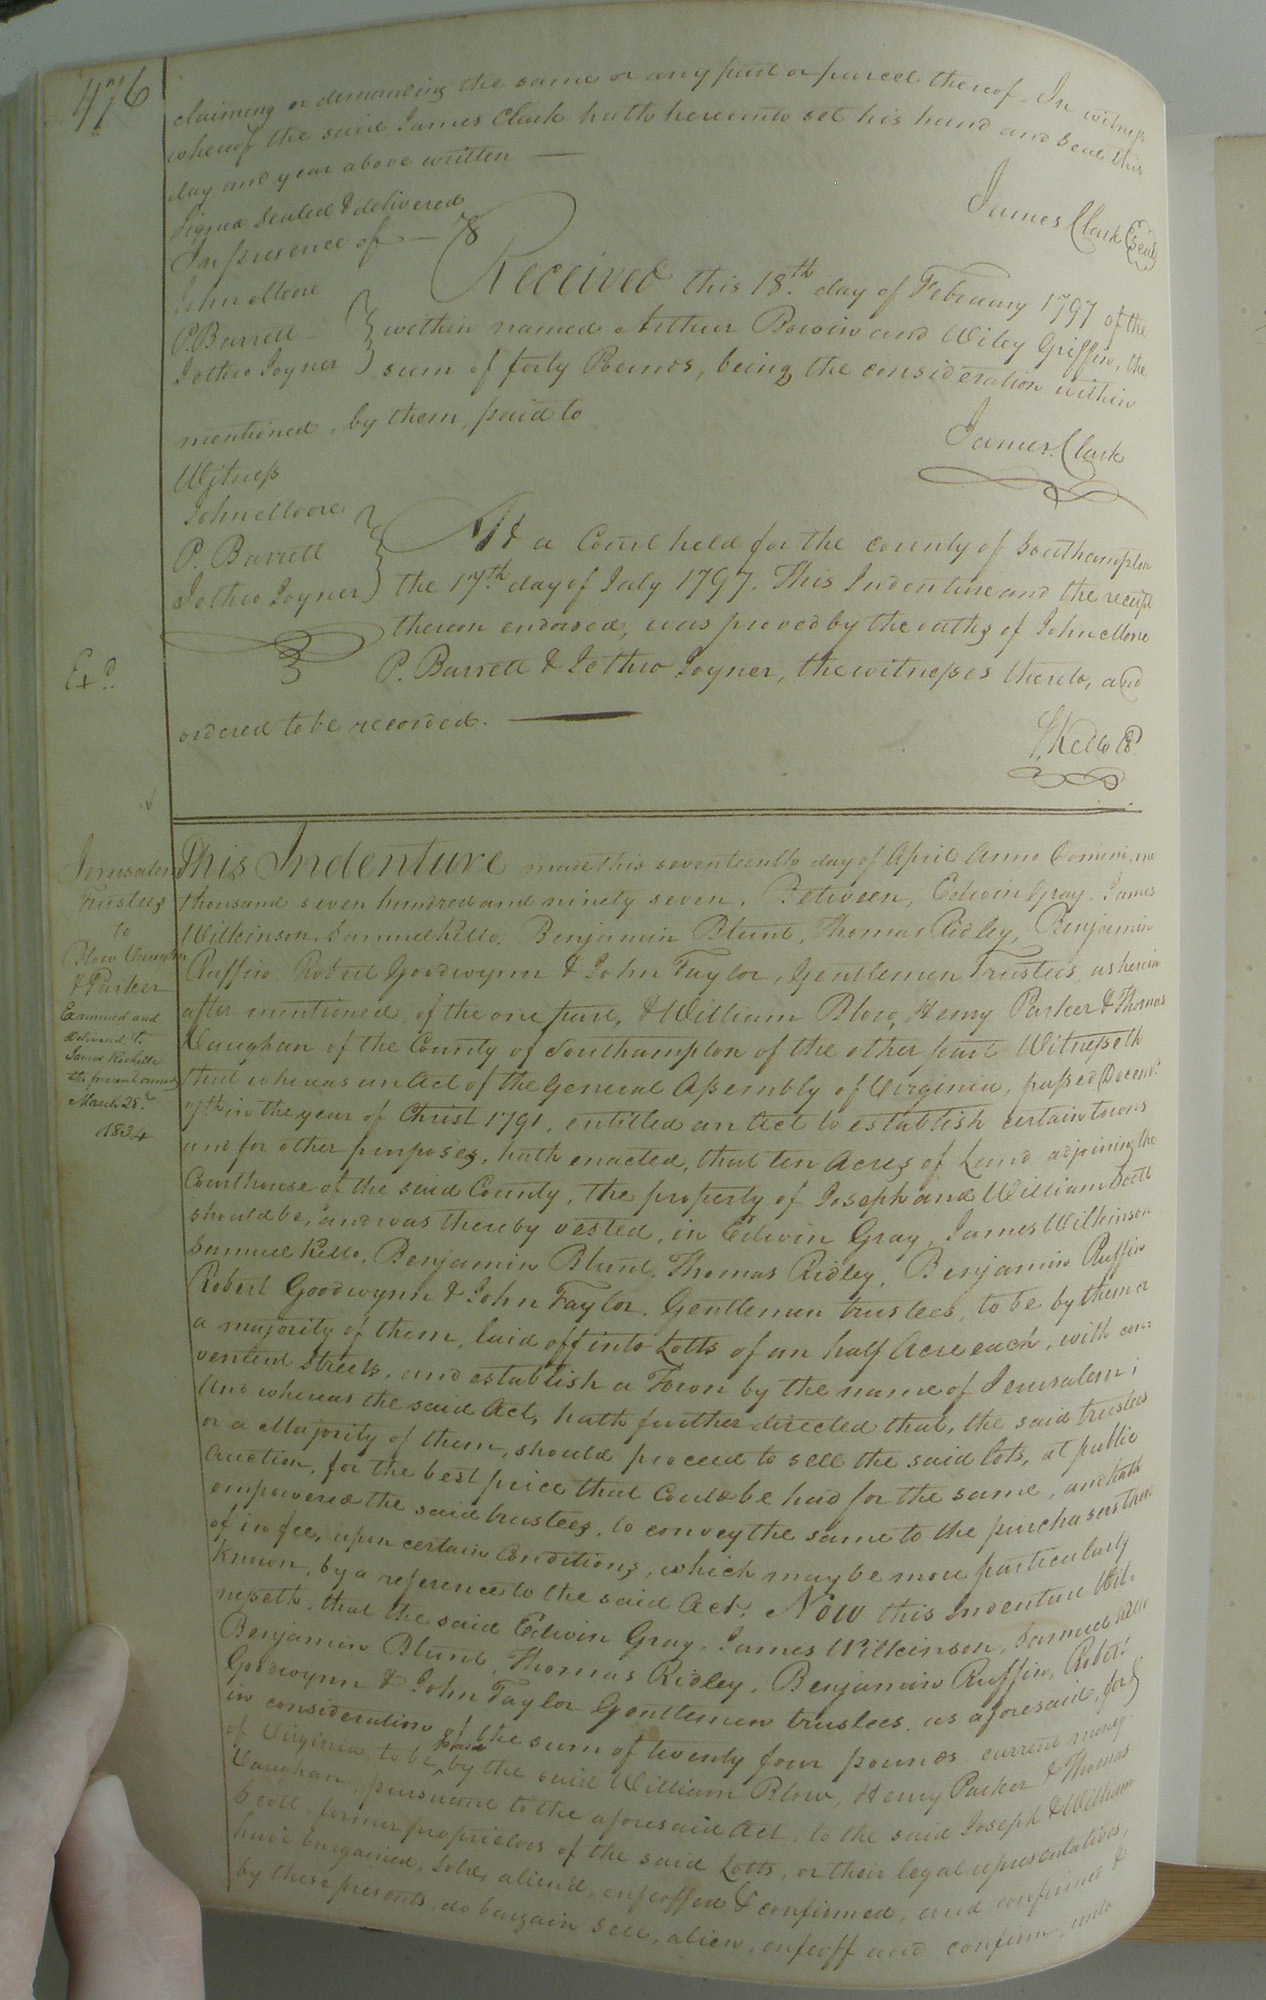 476
claiming or demanding the same or any part or parcel thereof. In witness
whereof the said James Clark hath hereunto set his hand and seal this
day and year above written —
Signed Sealed & delivered
In presence of —
James Clark (Seal)
John Moore
P. Barrett
Jethro Joyner
Received this 18th. day of February 1797 of the
within named Arthur Bowin and Wiley Griffin, the
sum of forty Pounds, being the consideration within
mentioned, by them paid to
James Clark
Witness
John Moore
P. Barrett
Jethro Joyner
At a Court held for the county of Southampton
the 17th. day of July 1797. This Indenture and the receipt
thereon endorsed, was proved by the oaths of John Moore
P. Barrett & Jethro Joyner, the witnesses thereto, and
ordered to be recorded. —
Exd.
S. Kello
Jerusalem
Trustees
to
Blow Vaughan
& Parker
Examined and
delivered to
James Rochelle
March 28.
1834
This Indenture made this seventeenth day of April Anno Domini, one
thousand seven hundred and ninety seven. Between, Edwin Gray. James
Wilkinson, Samuel Kello, Benjamin Blunt, Thomas Ridley, Benjamin
Ruffin Robert Goodwynn & John Taylor, Gentlemen Trustees, as herein
after mentioned of the one part, & William Blow, Henry Parker & Thomas
Vaughan of the County of Southampton of the other part Witnesseth
that whereas an Act of the General Assembly of Virginia, passed Decemr.
in the year of Christ 1791, entitled an Act to establish certain towns
and for other purposes, hath enacted, that ten Acres of Land adjoining the
Courthouse of the said County, the property of Joseph and William Scott
should be, and was thereby vested, in Edwin Gray, James Wilkinson
Samuel Kello, Benjamin Blunt, Thomas Ridley, Benjamin Ruffin
Robert Goodwynn & John Taylor. Gentlemen trustees, to be by them or
a majority of them, laid off into Lotts of an half Acre each, with con=
venient Streets, and establish a Town by the name of Jerusalem;
And whereas the said Act, hath further directed that, the said trustees
or a Majority of them, should proceed to sell the said lots, at public
Auction, for the best price that could be had for the same, and hath
empowered the said trustees, to convey the same to the purchasers there
of in fee, upon certain Conditions, which may be more particularly
known, by a reference to the said Act. Now this Indenture Wit=
nesseth, that the said Edwin Gray, James Wilkinson, Samuel Kello
Benjamin Blunt, Thomas Ridley, Benjamin Ruffin, Robert
Goodwynn & John Taylor Gentlemen trustees as aforesaid, for &
in consideration of the sum of twenty four pounds current money
of Virginia to be paid by the said William Blow, Henry Parker & Thomas
Vaughan, pursuant to the aforesaid Act, to the said Joseph & William
Scott former proprietors of the said Lotts, or their legal representatives,
have bargained, sold, alien'd, enfeoffed & confirmed, and
by these presents do bargain sell, alien, enfeoff and confirm unto